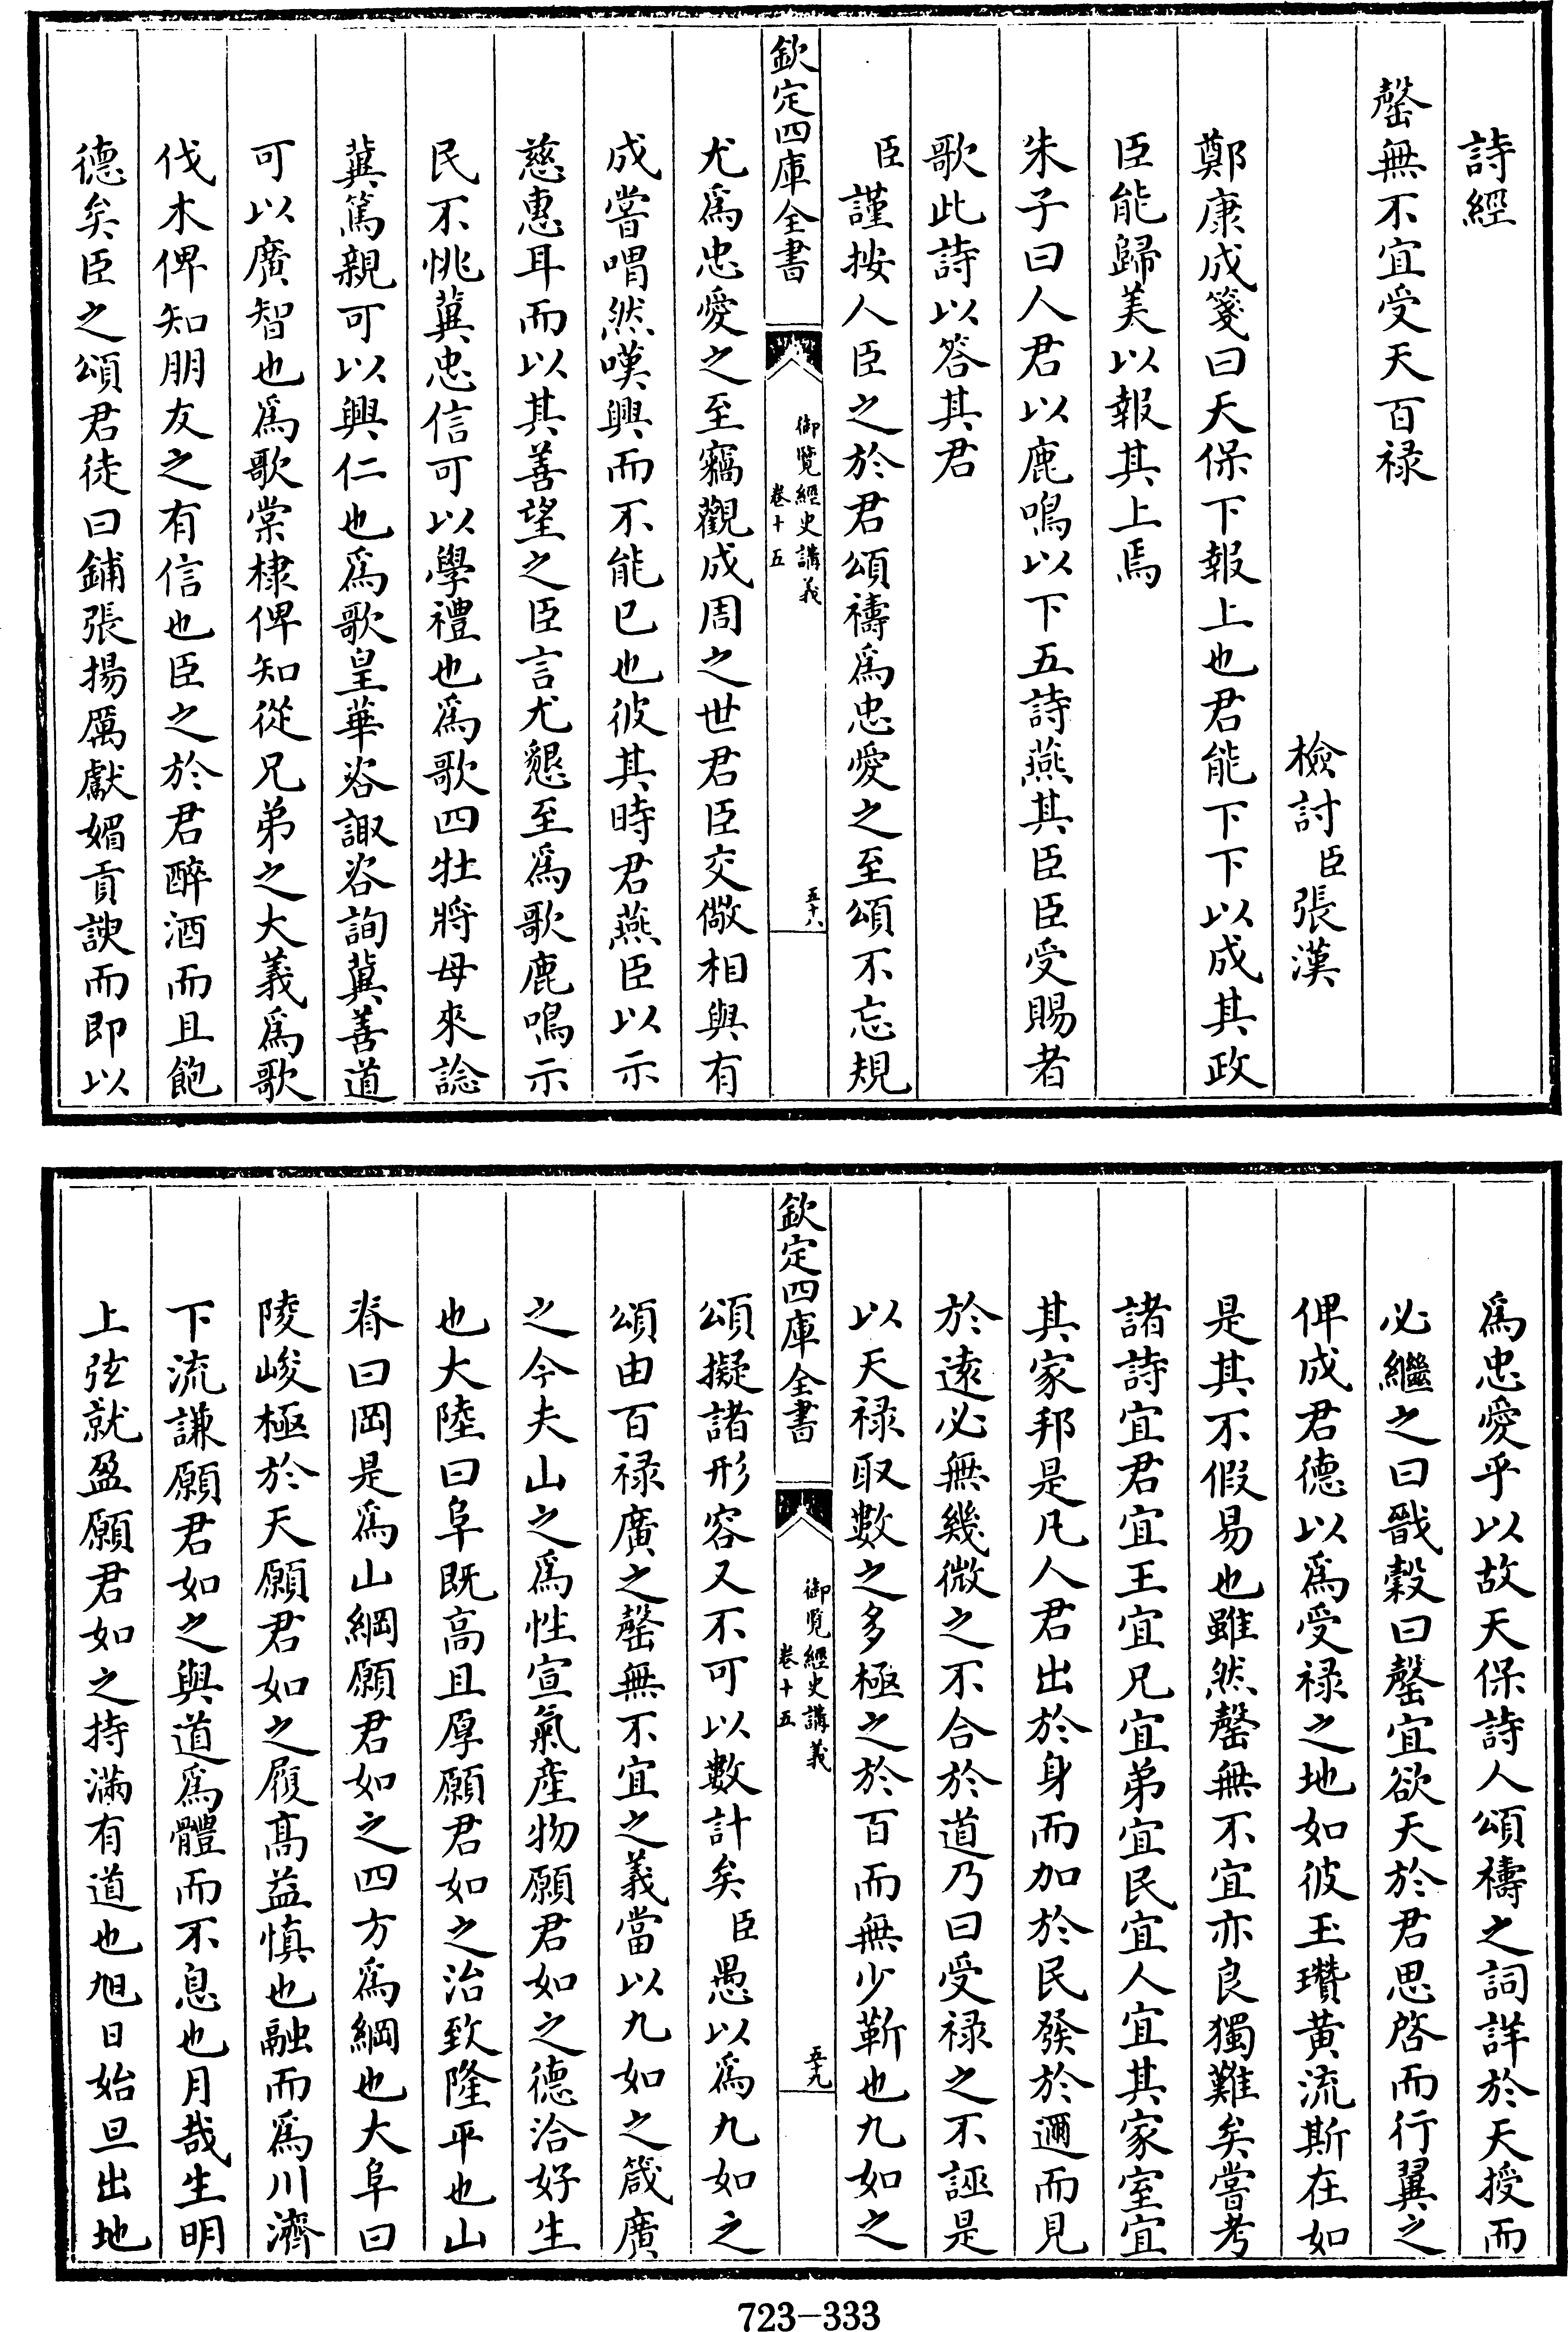 詩經
罄無不宜受天百禄
檢討臣張漢
鄭康成箋曰天保下報上也君能下下以成其政
臣能歸美以報其上焉
朱子曰人君以鹿鳴以下五詩燕其臣臣受賜者
歌此詩以答其君
臣謹按人臣之於君頌禱爲忠愛之至頌不忘規
欽定四庫全書
御覽經史講義
卷十五
五十八
尤爲忠愛之至竊觀成周之世君臣交儆相與有
成嘗喟然嘆興而不能已也彼其時君燕臣以示
慈惠耳而以其善望之臣言尤懇至爲歌鹿鳴示
民不恌冀忠信可以學禮也爲歌四牡將母來諗
冀篤親可以興仁也爲歌皇華咨諏咨詢冀善道
可以廣智也爲歌棠棣俾知從兄弟之大義爲歌
伐木俾知朋友之有信也臣之於君醉酒而且飽
德矣臣之頌君徒曰鋪張揚厲獻媚貢諛而即以
爲忠愛乎以故天保詩人頌禱之詞詳於天授而
必繼之曰戩穀曰罄宜欲天於君思啓而行翼之
俾成君德以爲受禄之地如彼玉瓚黄流斯在如
是其不假易也雖然罄無不宜亦良獨難矣嘗考
諸詩宜君宜王宜兄宜弟宜民宜人宜其家室宜
其家邦是凡人君出於身而加於民發於邇而見
於逺必無幾微之不合於道乃曰受禄之不誣是
以天禄取數之多極之於百而無少靳也九如之
欽定四庫全書
御覽經史講義
卷十五
五十九
頌擬諸形容又不可以數計矣臣愚以爲九如之
頌由百禄廣之罄無不宜之義當以九如之箴廣
之今夫山之爲性宣氣産物願君如之德洽好生
也大陸曰阜既高且厚願君如之治致隆平也山
脊曰岡是爲山綱願君如之四方爲綱也大阜曰
陵峻極於天願君如之履髙益慎也融而爲川濟
下流謙願君如之與道爲體而不息也月哉生明
上弦就盈願君如之持滿有道也旭日始旦出地
723-333